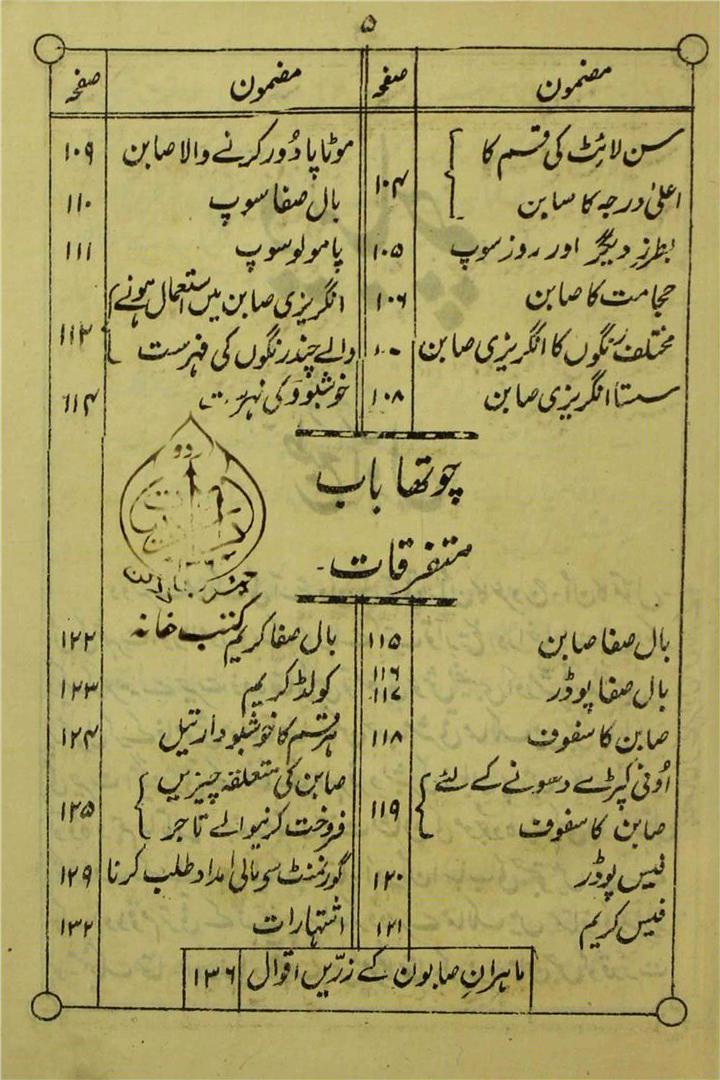 ۵
مضمون صفحہ مضمون صفحہ
سن لائٹ کی قسم کا
اعلیٰ درجہ کا صابن ۱۰۴
بطرزِ دیگر اور روز سوپ ۱۰۵
حجامت کا صابن ۱۰۶
مختلف رنگوں کا انگریزی صابن
سستا انگریزی صابن ۱۰۸
موٹاپا دُور کرنے والا صابن ۱۰۹
بال صفا سوپ ۱۱۰
پامولو سوپ ۱۱۱
انگریزی صابن میں استعمال ہونے
والے چند رنگوں کی فہرست ۱۱۲
خوشبوؤں کی فہرست ۱۱۴
چوتھا باب
متفرقات۔
اردو
کتب خانہ
بال صفا صابن ۱۱۵
بال صفا پوڈر ۱۱۶ ۱۱۷
صابن کا سفوف ۱۱۸
اُونی کپڑے دھونے کے لئے
صابن کا سفوف ۱۱۹
فیس پوڈر ۱۲۰
فیس کریم ۱۲۱
بال صفا کریم ۱۲۲
کولڈ کریم ۱۲۳
ہر قسم کا خوشبودار تیل ۱۲۴
صابن کی متعلقہ چیزیں
فروخت کرنیوالے تاجر ۱۲۵
گورنمنٹ سے مالی امداد طلب کرنا ۱۲۹
اشتہارات ۱۳۲
ماہرانِ صابون کے زرّیں اقوال ۱۳۶